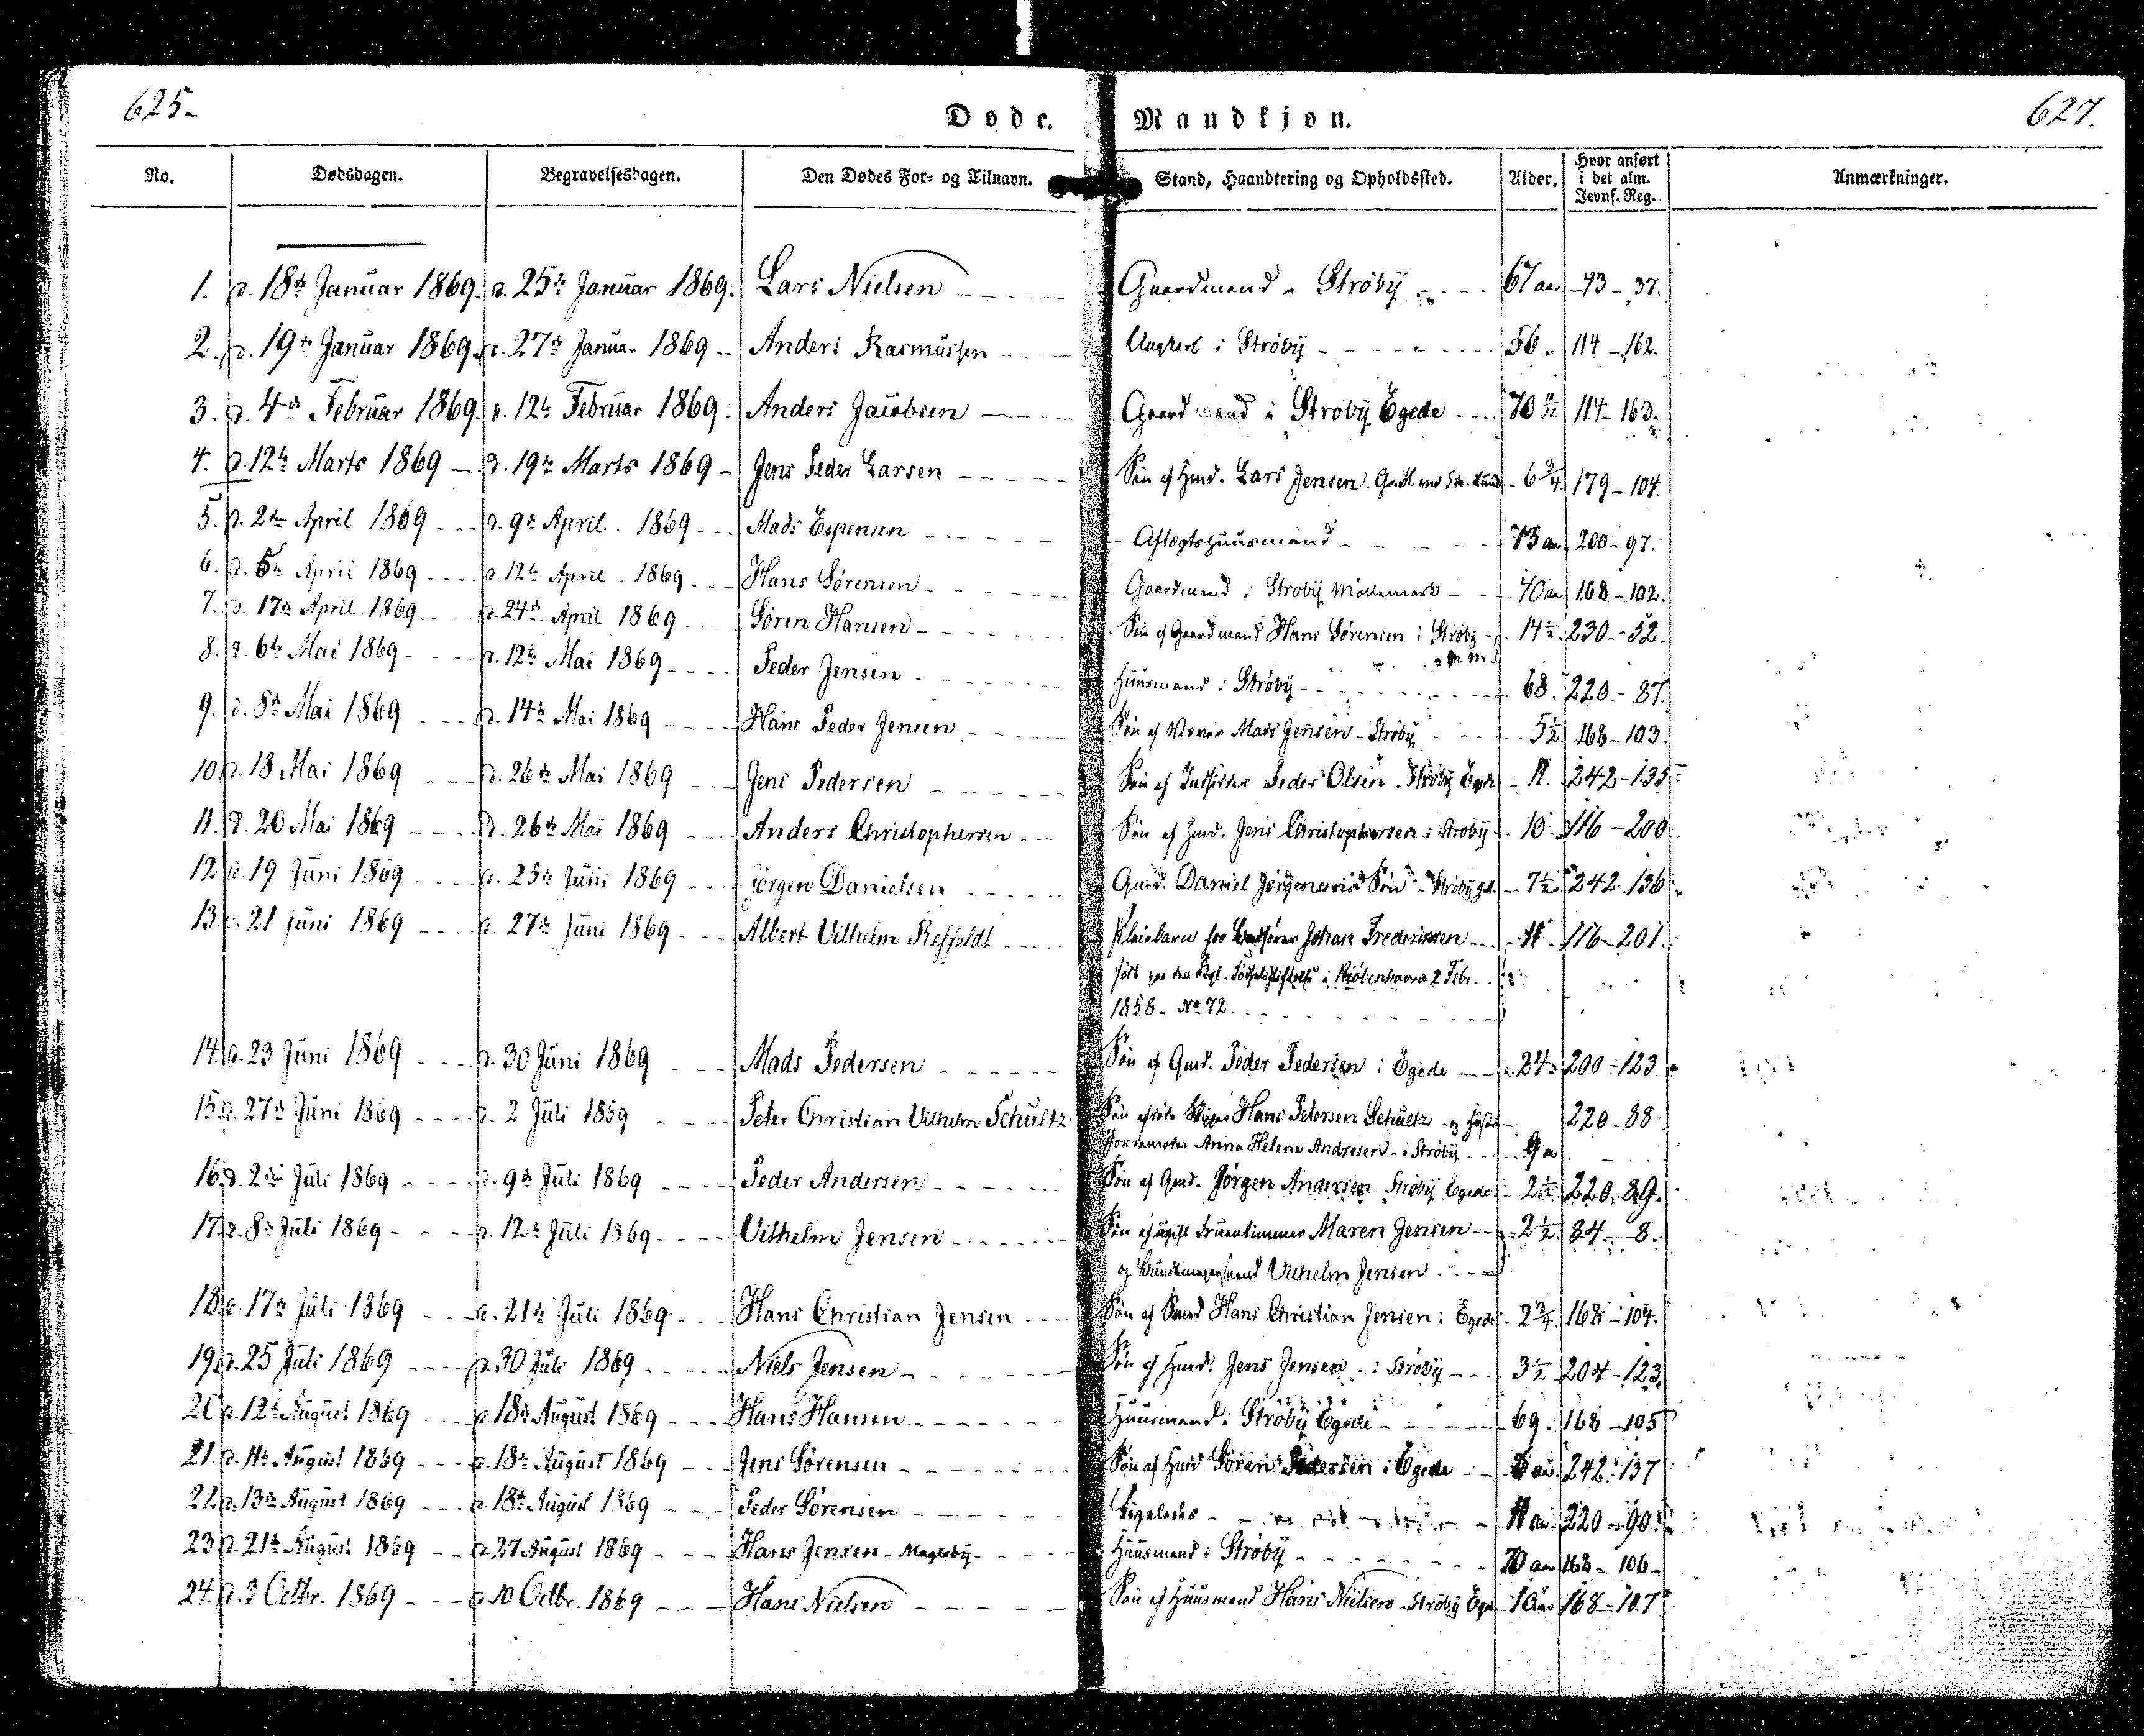 625.
627.
Døde. Mandkjøn.
No. Dødsdagen. Begravelsesdagen. Den Dødes For- og Tilnavn. Stand, Haandtering og Opholdssted. Alder. Hvor anført i det alm. Jevnf. Reg. Anmærkninger.
1. d. 18de Januar 1869. d. 25de Januar 1869. Lars Nielsen Gaardmand Strøby 67 aar 43-37.
2. d. 19de Januar 1869. d. 27de Januar 1869 Anders Rasmussen Ungkarl i Strøby 56. 114-162.
3. d. 4de Februar 1869. d. 12te Februar 1869. Anders Jacobsen Gaardmand i Strøby Egede 70 114-163.
4. d. 12te Marts 1869 d. 19de Marts 1869 Jens Peder Larsen Søn af Hmd. Lars Jensen 6 3/4 179-104.
5. d. 2den April 1869 d. 9de April 1869 Mads Espensen Aftægtshuusmand 73 aar 200-97.
6. d. 5te April 1869 d. 12te April 1869 Hans Sørensen Gaardmand i Strøby Møllemark 40 aar 168-102.
7. d. 17de April 1869 d. 24de April 1869 Søren Hansen Søn af Gaardmand Hans Sørensen i Strøby 14 1/2 230-52.
8. d. 6te Mai 1869 d. 12te Mai 1869 Peder Jensen Huusmand i Strøby 68. 220-87.
9. d. 8de Mai 1869 d. 14de Mai 1869 Hans Peder Jensen Søn af Væver Mads Jensen Strøby 5 1/2 168-103.
10. d. 18 Mai 1869 d. 26de Mai 1869 Jens Pedersen Søn af Indsidder Peder Olsen Strøby Egede 11. 242-135
11. d. 20 Mai 1869 d. 26de Mai 1869 Anders Christophersen Søn af Hmd. Jens Christophersen i Strøby 10 116-200
12. d. 19 Juni 1869 d. 25de Juni 1869 Jørgen Danielsen Gmd. Daniel Jørgensens Søn Strøby 7 1/2 242-136
13. d. 21 Juni 1869 d. 27de Juni 1869 Albert Vilhelm Reffeldt Pleiebarn hos Johan Frederiksen 11 116-201.
født paa den Kgl. Fødselsstiftelse i Kjøbenhavn 2 Febr.
1858. No 72.
14. d. 23 Juni 1869 d. 30 Juni 1869 Mads Pedersen Søn af Gmd. Peder Pedersen i Egede 24 200-123
15. d. 27de Juni 1869 d. 2 Juli 1869 Peter Christian Vilhelm Schultz Søn af Hans Petersen Schultz og 220-88
Jordemoder Anna Helene Andresen i Strøby 9 a
16. d. 2den Juli 1869 d. 9de Juli 1869 Peder Andersen Søn af Gmd. Jørgen Andersen Strøby Egede 2 1/2 220-89.
17. d. 8de Juli 1869 d. 12te Juli 1869 Vilhelm Jensen Søn af ugift Fruentimmer Maren Jensen 2 1/2 84-8.
og Vilhelm Jensen
18. d. 17de Juli 1869 d. 21de Juli 1869 Hans Christian Jensen Søn af Smed Hans Christian Jensen i Egede 2 3/4 168-104.
19. d. 25 Juli 1869 d. 30 Juli 1869 Niels Jensen Søn af Hmd. Jens Jensen i Strøby 3 1/2 204-123.
20. d. 12te August 1869 d. 18de August 1869 Hans Hansen Huusmand i Strøby Egede 69. 168-105
21. d. 11te August 1869 d. 18de August 1869 Jens Sørensen Søn af Hmd Søren Pedersen i Egede 242-137
22. d. 13de August 1869 d. 18de August 1869 Peder Sørensen Ligeledes 11 aar 220-90.
23. d. 21de August 1869 d. 27 August 1869 Hans Jensen - Magleby Huusmand i Strøby 70 aar 168-106
24. d. 3 Octbr. 1869 d. 10 Octbr. 1869 Hans Nielsen Søn af Huusmand Hans Nielsen Strøby Egede 168-107